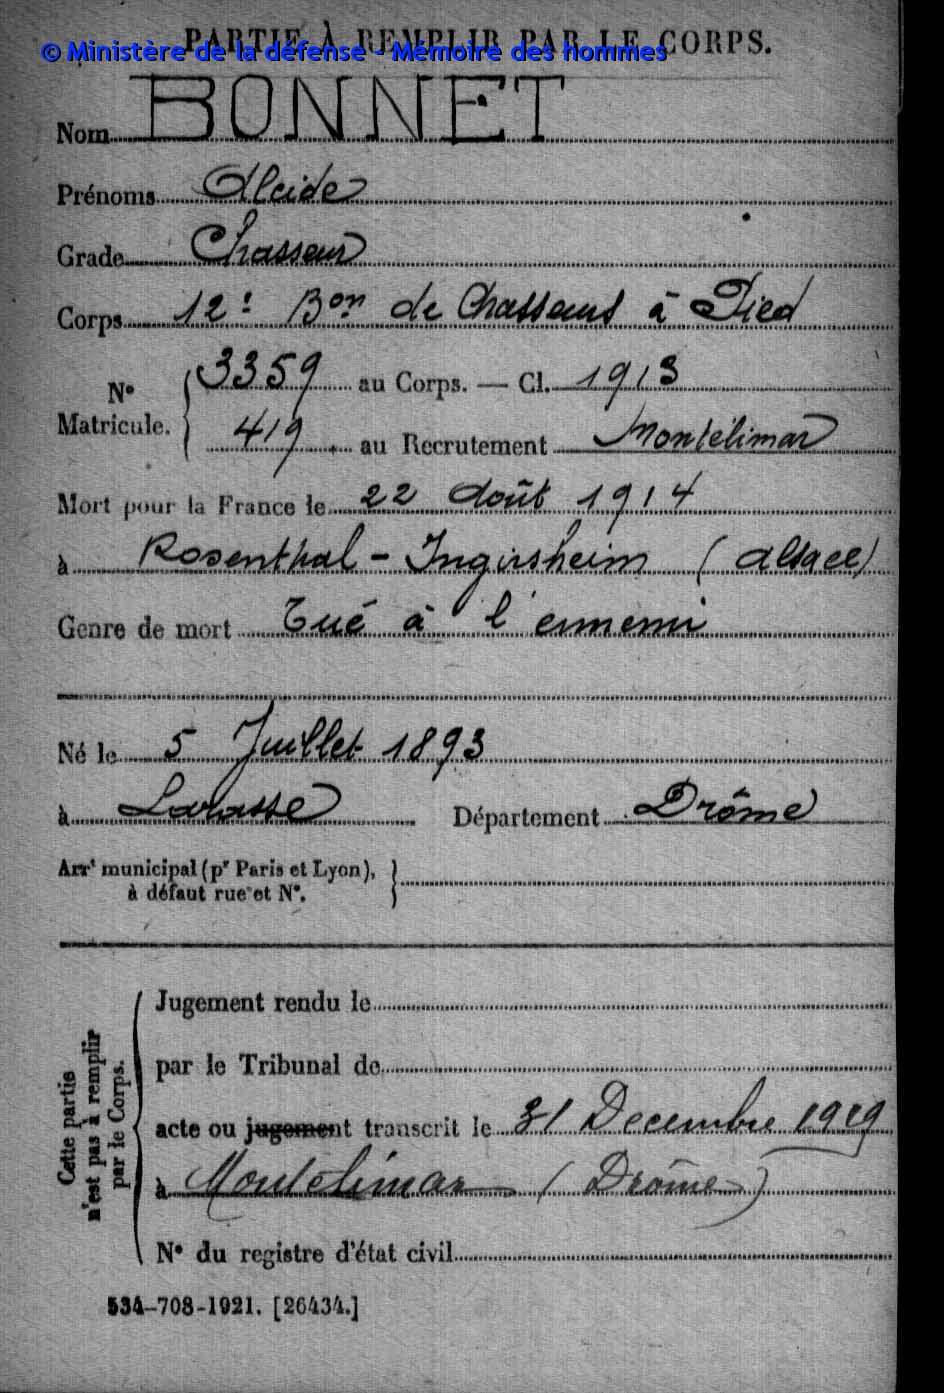 PARTIE À REMPLIR PAR LE CORPS.
© Ministère de la défense - Mémoire des hommes
Nom BONNET
Prénoms Alcide
Grade Chasseur
Corps 12e Bon de Chasseurs à Pied
No Matricule. { 3359 au Corps. — Cl. 1913
419 au Recrutement Montélimar
Mort pour la France le 22 Août 1914
à Rosenthal - Ingersheim (Alsace)
Genre de mort Tué à l'ennemi
Né le 5 Juillet 1893
à Département Drôme
Arrt municipal (pr Paris et Lyon),
à défaut rue et No.
Cette partie
n'est pas à remplir
par le Corps.
Jugement rendu le
par le Tribunal de
acte ou jugement transcrit le 31 Decembre 1919
à Montélimar (Drôme)
No du registre d'état civil
534-708-1921. [26434.]